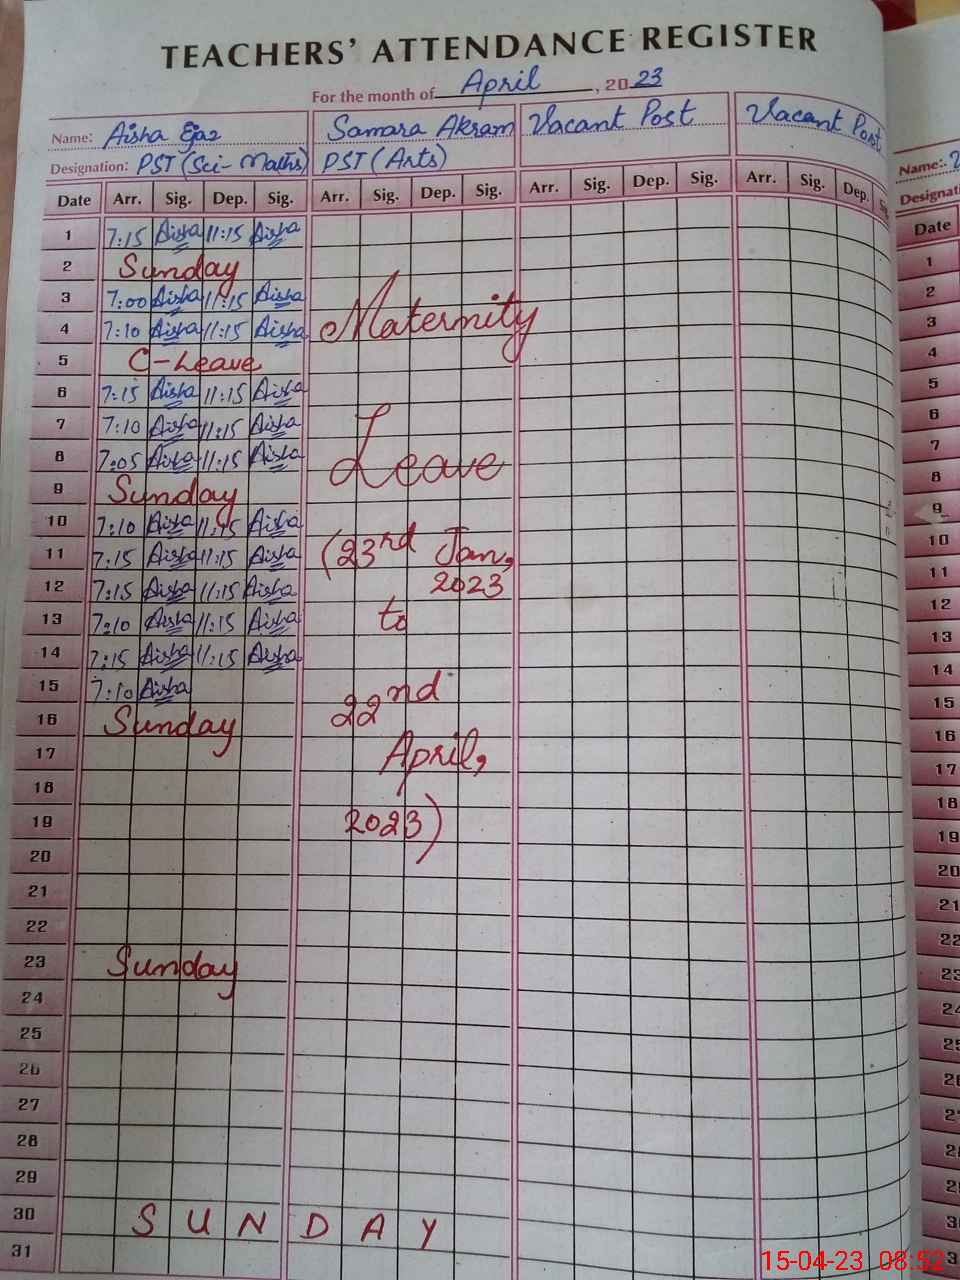 TEACHERS' ATTENDANCE REGISTER
For the month of April, 2023
Name: Aisha Ejaz Samara Akram Vacant Post Vacant Post
Designation: PST (Sci-Maths) PST (Arts)
Date Arr. Sig. Dep. Sig. Arr. Sig. Dep. Sig. Arr. Sig. Dep. Sig. Arr. Sig. Dep.
1 7:15 Aisha 11:15 Aisha
2 Sunday
3 7:00 Aisha 11:15 Aisha
4 7:10 Aisha 11:15 Aisha Maternity
5 C-Leave
6 7:15 Aisha 11:15 Aisha
7 7:10 Aisha 11:15 Aisha
8 7:05 Aisha 11:15 Aisha Leave
9 Sunday
10 7:10 Aisha 11:15 Aisha
11 7:15 Aisha 11:15 Aisha (23rd Jan,
12 7:15 Aisha 11:15 Aisha 2023
13 7:10 Aisha 11:15 Aisha to
14 7:15 Aisha 11:15 Aisha
15 7:10 Aisha
16 Sunday 22nd
17 April,
18
19 2023)
20
21
22
23 Sunday
24
25
26
27
28
29
30 SUNDAY
31
Name:
Date
1
2
3
4
5
6
7
8
9
10
11
12
13
14
15
16
17
18
19
20
21
22
23
15-04-23 08:52